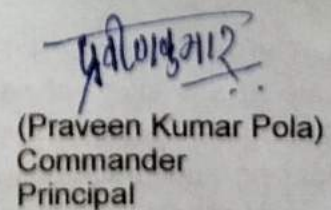 प्रवीण कुमार
(Praveen Kumar Pola)
Commander
Principal